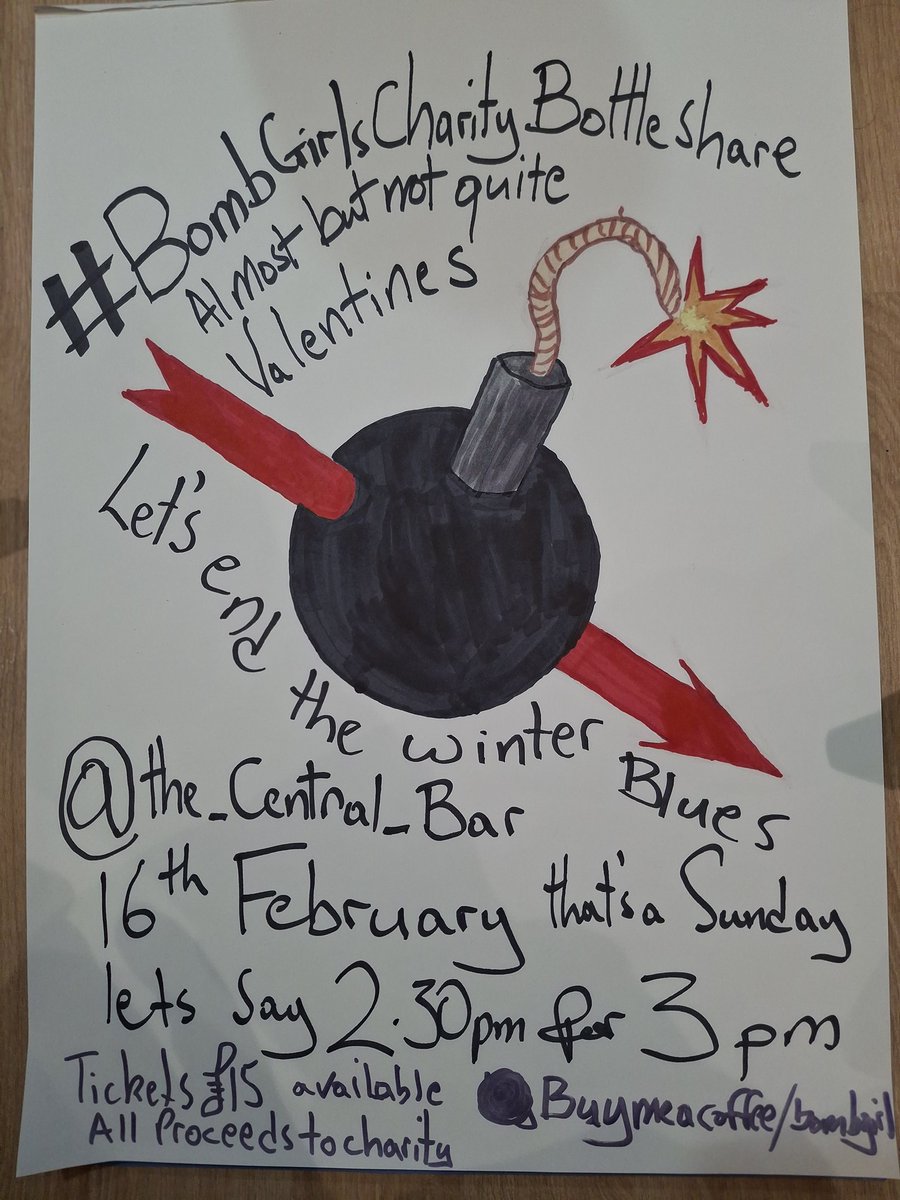 #BombGirlsCharityBottleshare
Almost but not quite
Valentines
Let's end the winter Blues
@the_Central_Bar
16th February that's a Sunday
lets say 2.30pm for 3pm
Tickets £15 available
All Proceeds to charity
Buymeacoffee/bombgirl